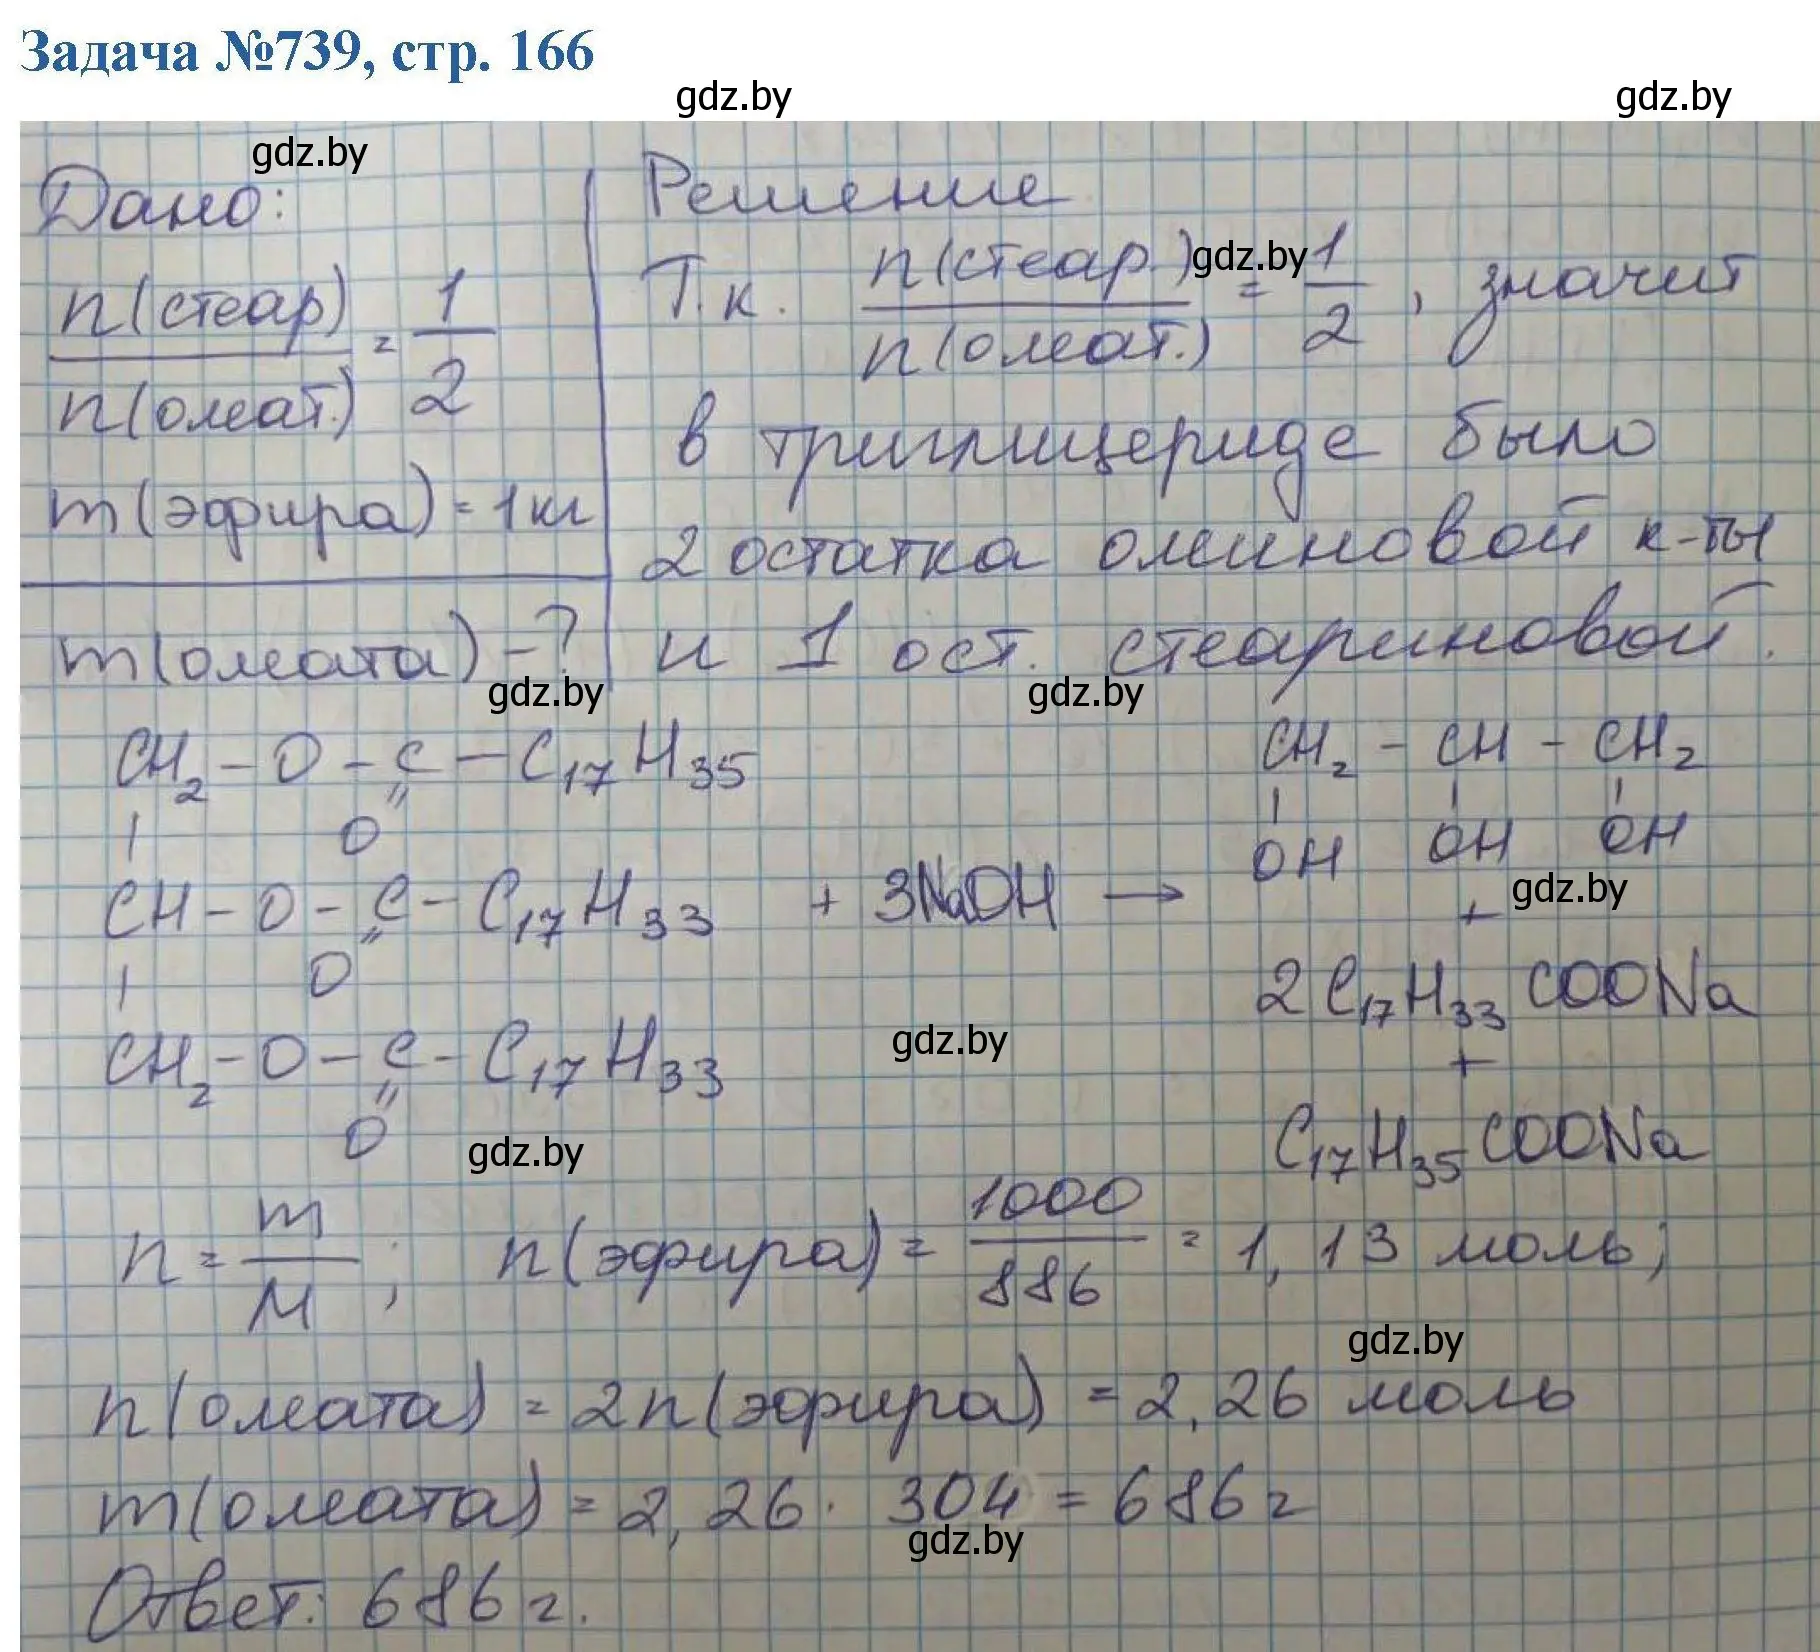 Задача №739, стр. 166
gdz.by gdz.by
gdz.by
Дано:
n(стеар) / n(олеат.) = 1/2
m(эфира) = 1кг
m(олеата) - ?
gdz.by
Решение
Т.к. n(стеар.) / n(олеат.) = 1/2, значит
gdz.by
в триглицериде было
2 остатка олеиновой к-ты
и 1 ост. стеариновой.
gdz.by
CH₂ - O - C - C₁₇H₃₅
| O
CH - O - C - C₁₇H₃₃ + 3NaOH →
| O
CH₂ - O - C - C₁₇H₃₃
O
CH₂ - CH - CH₂
OH OH OH
+ gdz.by
2C₁₇H₃₃COONa
+
C₁₇H₃₅COONa
gdz.by
gdz.by
n = m/M ; n(эфира) = 1000/886 = 1,13 моль;
gdz.by
n(олеата) = 2n(эфира) = 2,26 моль
m(олеата) = 2,26 · 304 = 686 г
gdz.by
Ответ: 686 г.